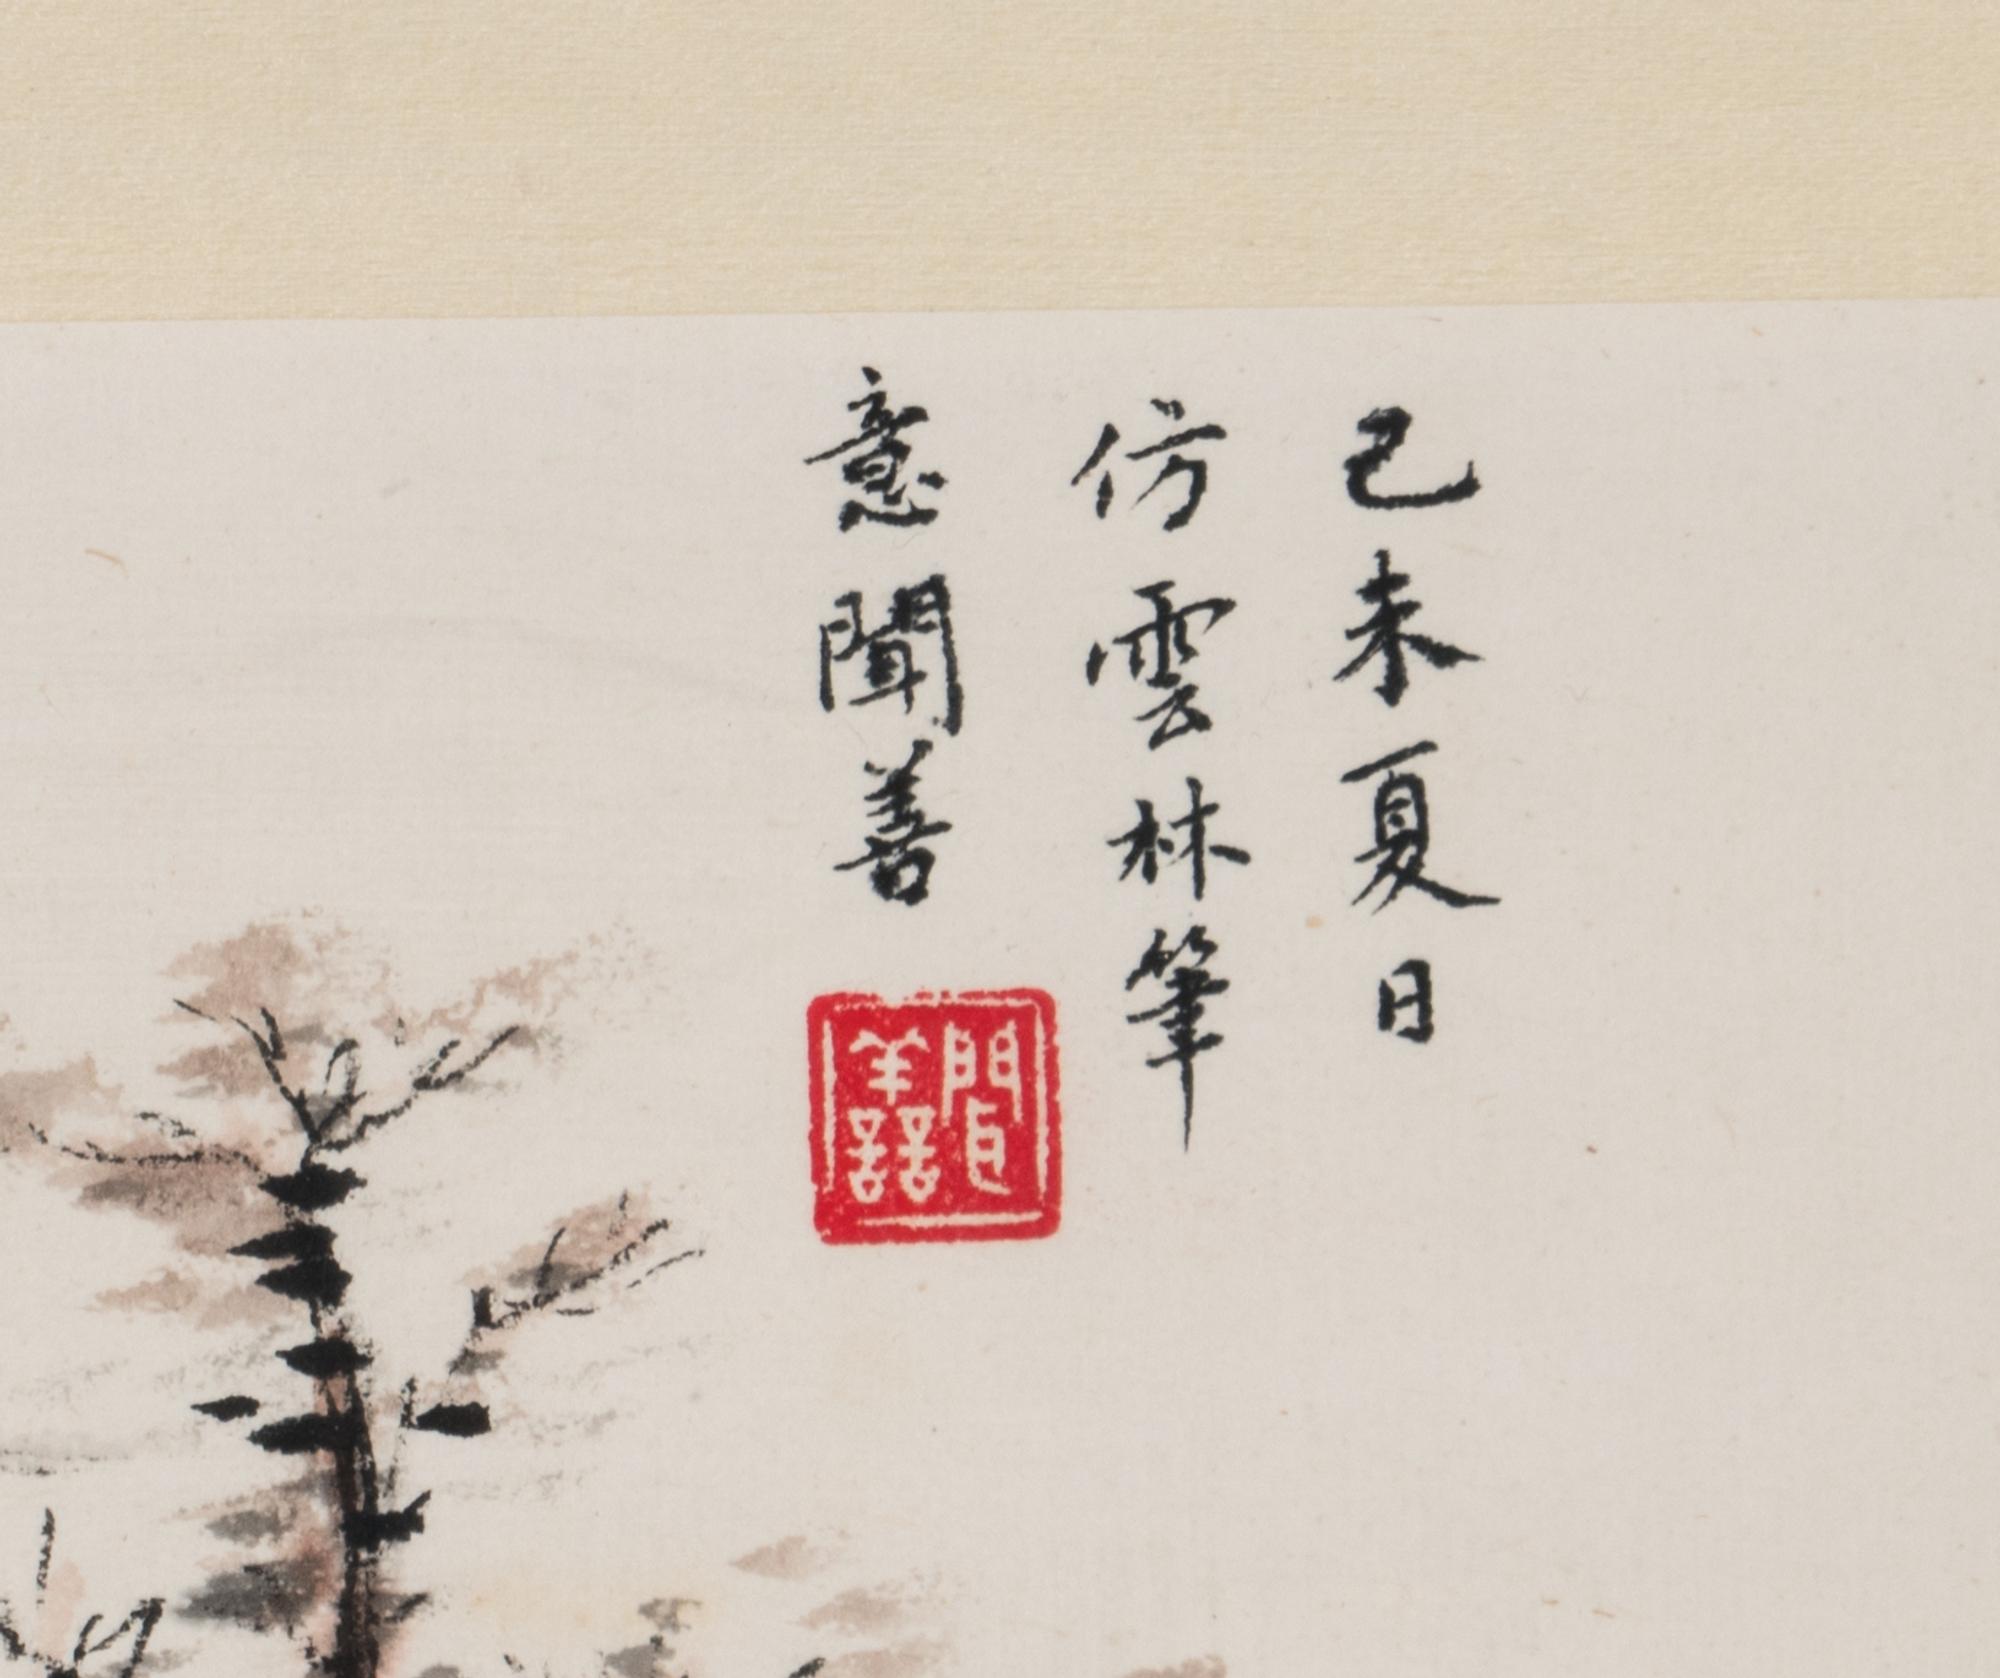 己未夏日
仿雲林筆
意聞善
聞善